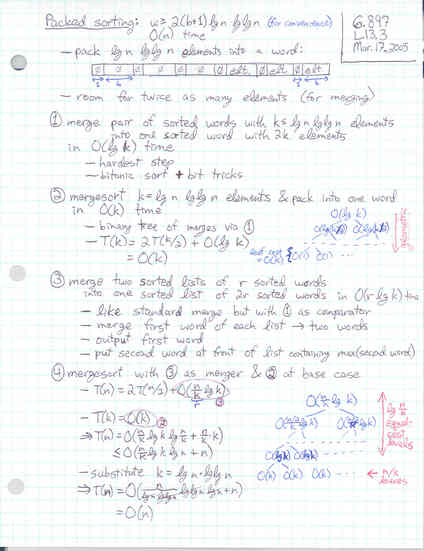 Packed sorting: w ≥ 2(b+1) lg n lg lg n (for convenience)
O(n) time
6.897
L13.3
Mar. 17, 2005
— pack lg n lg lg n elements into a word:
0 0 0 0 0 0 elt. 0 elt. 0 elt.
1 b 1 b
— room for twice as many elements (for merging)
① merge pair of sorted words with k ≤ lg n lg lg n elements
into one sorted word with 2k elements
in O(lg k) time
— hardest step
— bitonic sort + bit tricks
② mergesort k = lg n lg lg n elements & pack into one word
in O(k) time
— binary tree of merges via ①
— T(k) = 2T(k/2) + O(lg k)
= O(k)
O(lg k)
O(1) O(1) ...
geometric
③ merge two sorted lists of r sorted words
into one sorted list of 2r sorted words in O(r lg k) time
— like standard merge but with ① as comparator
— merge first word of each list → two words
— output first word
— put second word at front of list containing max(second word)
④ mergesort with ③ as merger & ② at base case
— T(n) = 2T(n/2) + O(n/k lg k)
r ③
— T(k) = O(k) ②
⇒ T(n) = O(n/k lg k lg n/k + n/k · k)
≤ O(n/k lg k lg n + n)
— substitute k = lg n · lg lg n
⇒ T(n) = O(n/(lg n lg lg n) lg lg n lg n + n)
= O(n)
O(n/k lg k)
O(lg k) O(lg k) ...
O(k) O(k) O(k) ...
lg n/k
equal-
cost
levels
← n/k
leaves